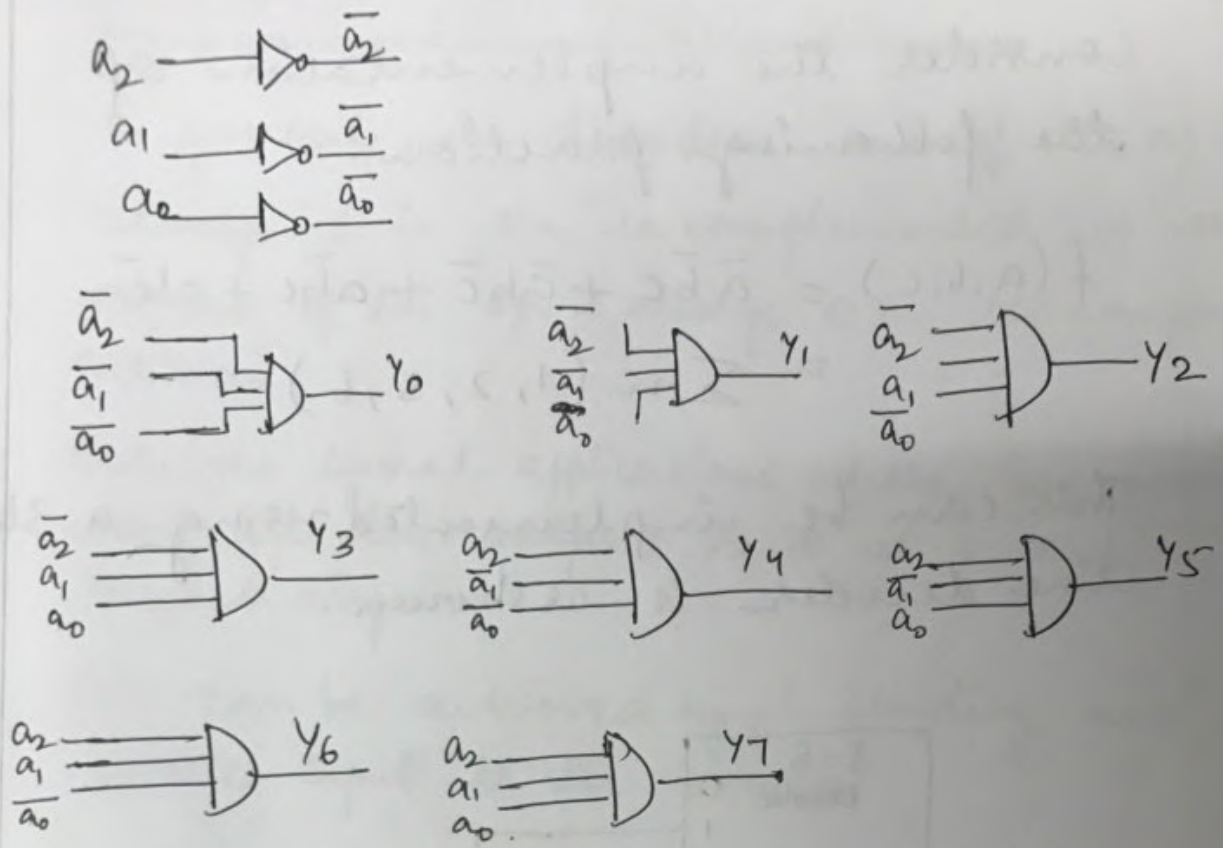 a₂ a̅₂
a₁ a̅₁
a₀ a̅₀
a̅₂ a̅₁ a̅₀ Y₀
a̅₂ a̅₁ a̅₀ Y₁
a̅₂ a₁ a̅₀ Y₂
a̅₂ a₁ a₀ Y₃
a₂ a̅₁ a̅₀ Y₄
a₂ a̅₁ a₀ Y₅
a₂ a₁ a̅₀ Y₆
a₂ a₁ a₀ Y₇